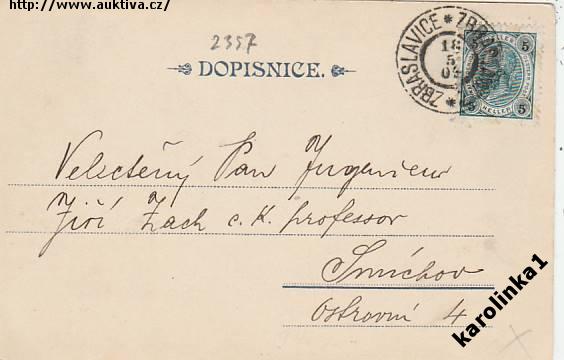 http://www.auktiva.cz/
2357
DOPISNICE.
ZBRASLAVICE * ZBRASLAVICE *
18
5
5 HELLER 5
Velectěný Pan Jngenieur
Jiří Zach c. k. professor
Smíchov
Ostrovní 4
karolinka1